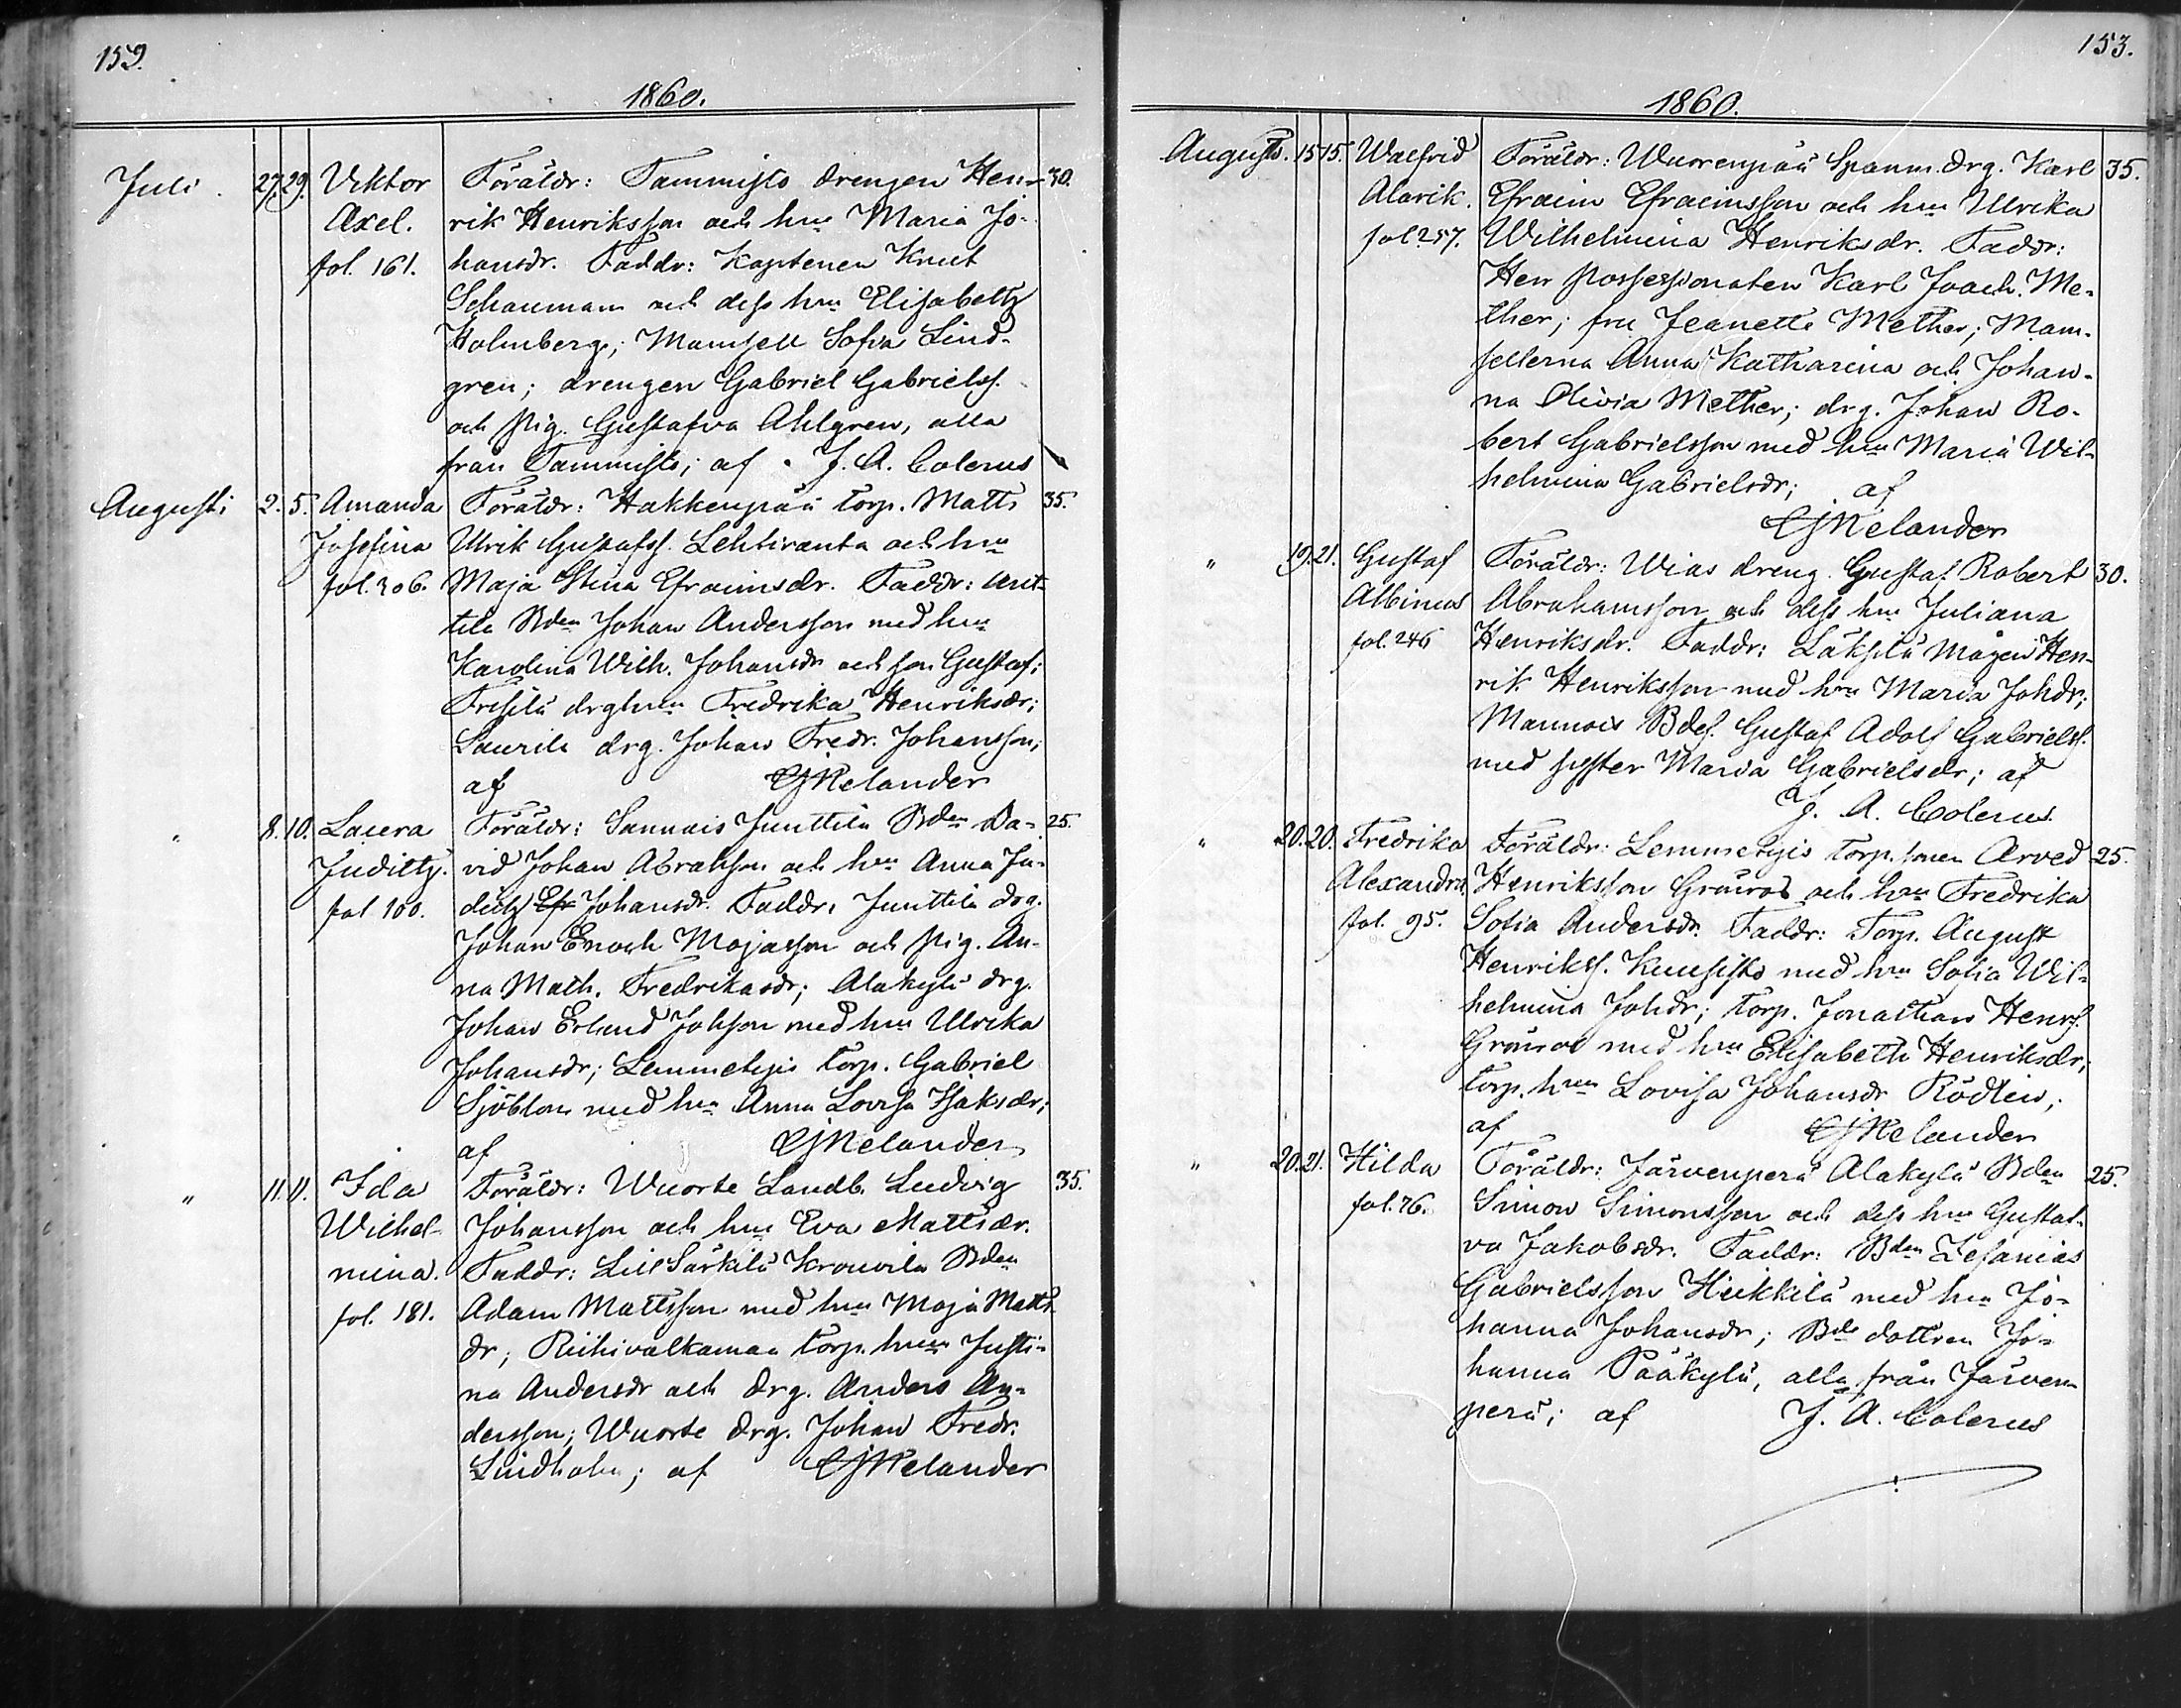 152.
1860.
Juli. 27. 29. Viktor Föräldr: Tammisto drengen Hen- 30.
Axel. rik Henriksson och hu Maria Jo-
fol. 161. hansdr. Faddr: Kaptenen Knut
Schauman och dess hu Elisabeth
Holmberg; Mamsell Sofia Lind-
gren; drengen Gabriel Gabrielss.
och pig. Gustafva Ahlgren, alla
från Tammisto; af J. A. Colerus
Augusti 2. 5. Amanda Föräldr: Hakkenpää torp. Matts 35.
Josefina Ulrik Gustafss. Lehtiranta och hu
fol. 306. Maja Stina Efraimsdr. Faddr: Ant-
tila Bden Johan Andersson med hu
Karolina Wilh. Johansdr och son Gustaf;
drghu Fredrika Henriksdr;
Laurila drg. Johan Fredr. Johansson;
af CJMelander
" 8. 10. Laura Föräldr: Sannais Junttila Bden Da- 25.
Judith. vid Johan Abrahsson och hu Anna Ju-
fol 100. dith Efr Johansdr. Faddr: Junttila drg.
Johan Enoch Majasson och pig. An-
na Math. Fredrikasdr; Alakylä drg.
Johan Erland Johsson med hu Ulrika
Johansdr; Lemmetyis torp. Gabriel
Sjöblom med hu Anna Lovisa Isaksdr;
af CJMelander
" 11. 11. Ida Föräldr: Wuorte Landb. Ludvig 35.
Wilhel- Johansson och hu Eva Mattsdr.
mina. Faddr: Lill Särkilä Krouvila Bden
fol. 181. Adam Mattsson med hu Maja Matts
dr; Riihivalkamaa torp. hu Justi-
na Andersdr och drg. Anders An-
dersson; Wuorte drg. Johan Fredr.
Lindholm; af CJMelander
153.
1860.
Augusti. 15 15. Walfrid Föräldr: Wuorenpää Spanm. drg. Karl 35.
Alarik. Efraim Efraimsson och hu Ulrika
fol. 257. Wilhelmina Henriksdr. Faddr:
Herr Possessionaten Karl Joach. Me-
ther; fru Jeanette Mether; Mam-
sellerna Anna Katharina och Johan-
na Olivia Mether; drg. Johan Ro-
bert Gabrielsson med hu Maria Wil-
helmina Gabrielsdr; af
CJMelander
" 19. 21. Gustaf Föräldr: Wias dreng. Gustaf Robert 30.
Albinus Abrahamsson och dess hu Juliana
fol. 246 Henriksdr. Faddr: Läksilä Mågen Hen-
rik Henriksson med hu Maria Johdr;
Mannois Bdes. Gustaf Adolf Gabrielss.
med syster Maria Gabrielsdr; af
J. A. Colerus
" 20. 20. Fredrika Föräldr: Lemmetyis torp.sonen Arved 25.
Alexandra. Henriksson Grönroos och hu Fredrika
fol. 95. Sofia Andersdr. Faddr: Torp. August
Henrikss. Kuusisto med hu Sofia Wil-
helmina Johdr; torp. Jonathan Henrs.
Grönroos med hu Elisabeth Henriksdr;
torp. hu Lovisa Johansdr Rödlin;
af CJMelander
" 20. 21. Hilda Föräldr: Järvenperä Alakylä Bden 25.
fol. 76. Simon Simonsson och dess hu Gustaf-
va Jakobsdr. Faddr: Bden Zefanias
Gabrielsson Heikkilä med hu Jo-
hanna Johansdr; Bde dottren Jo-
hanna Pääkylä, alla från Järven-
perä; af J. A. Colerus